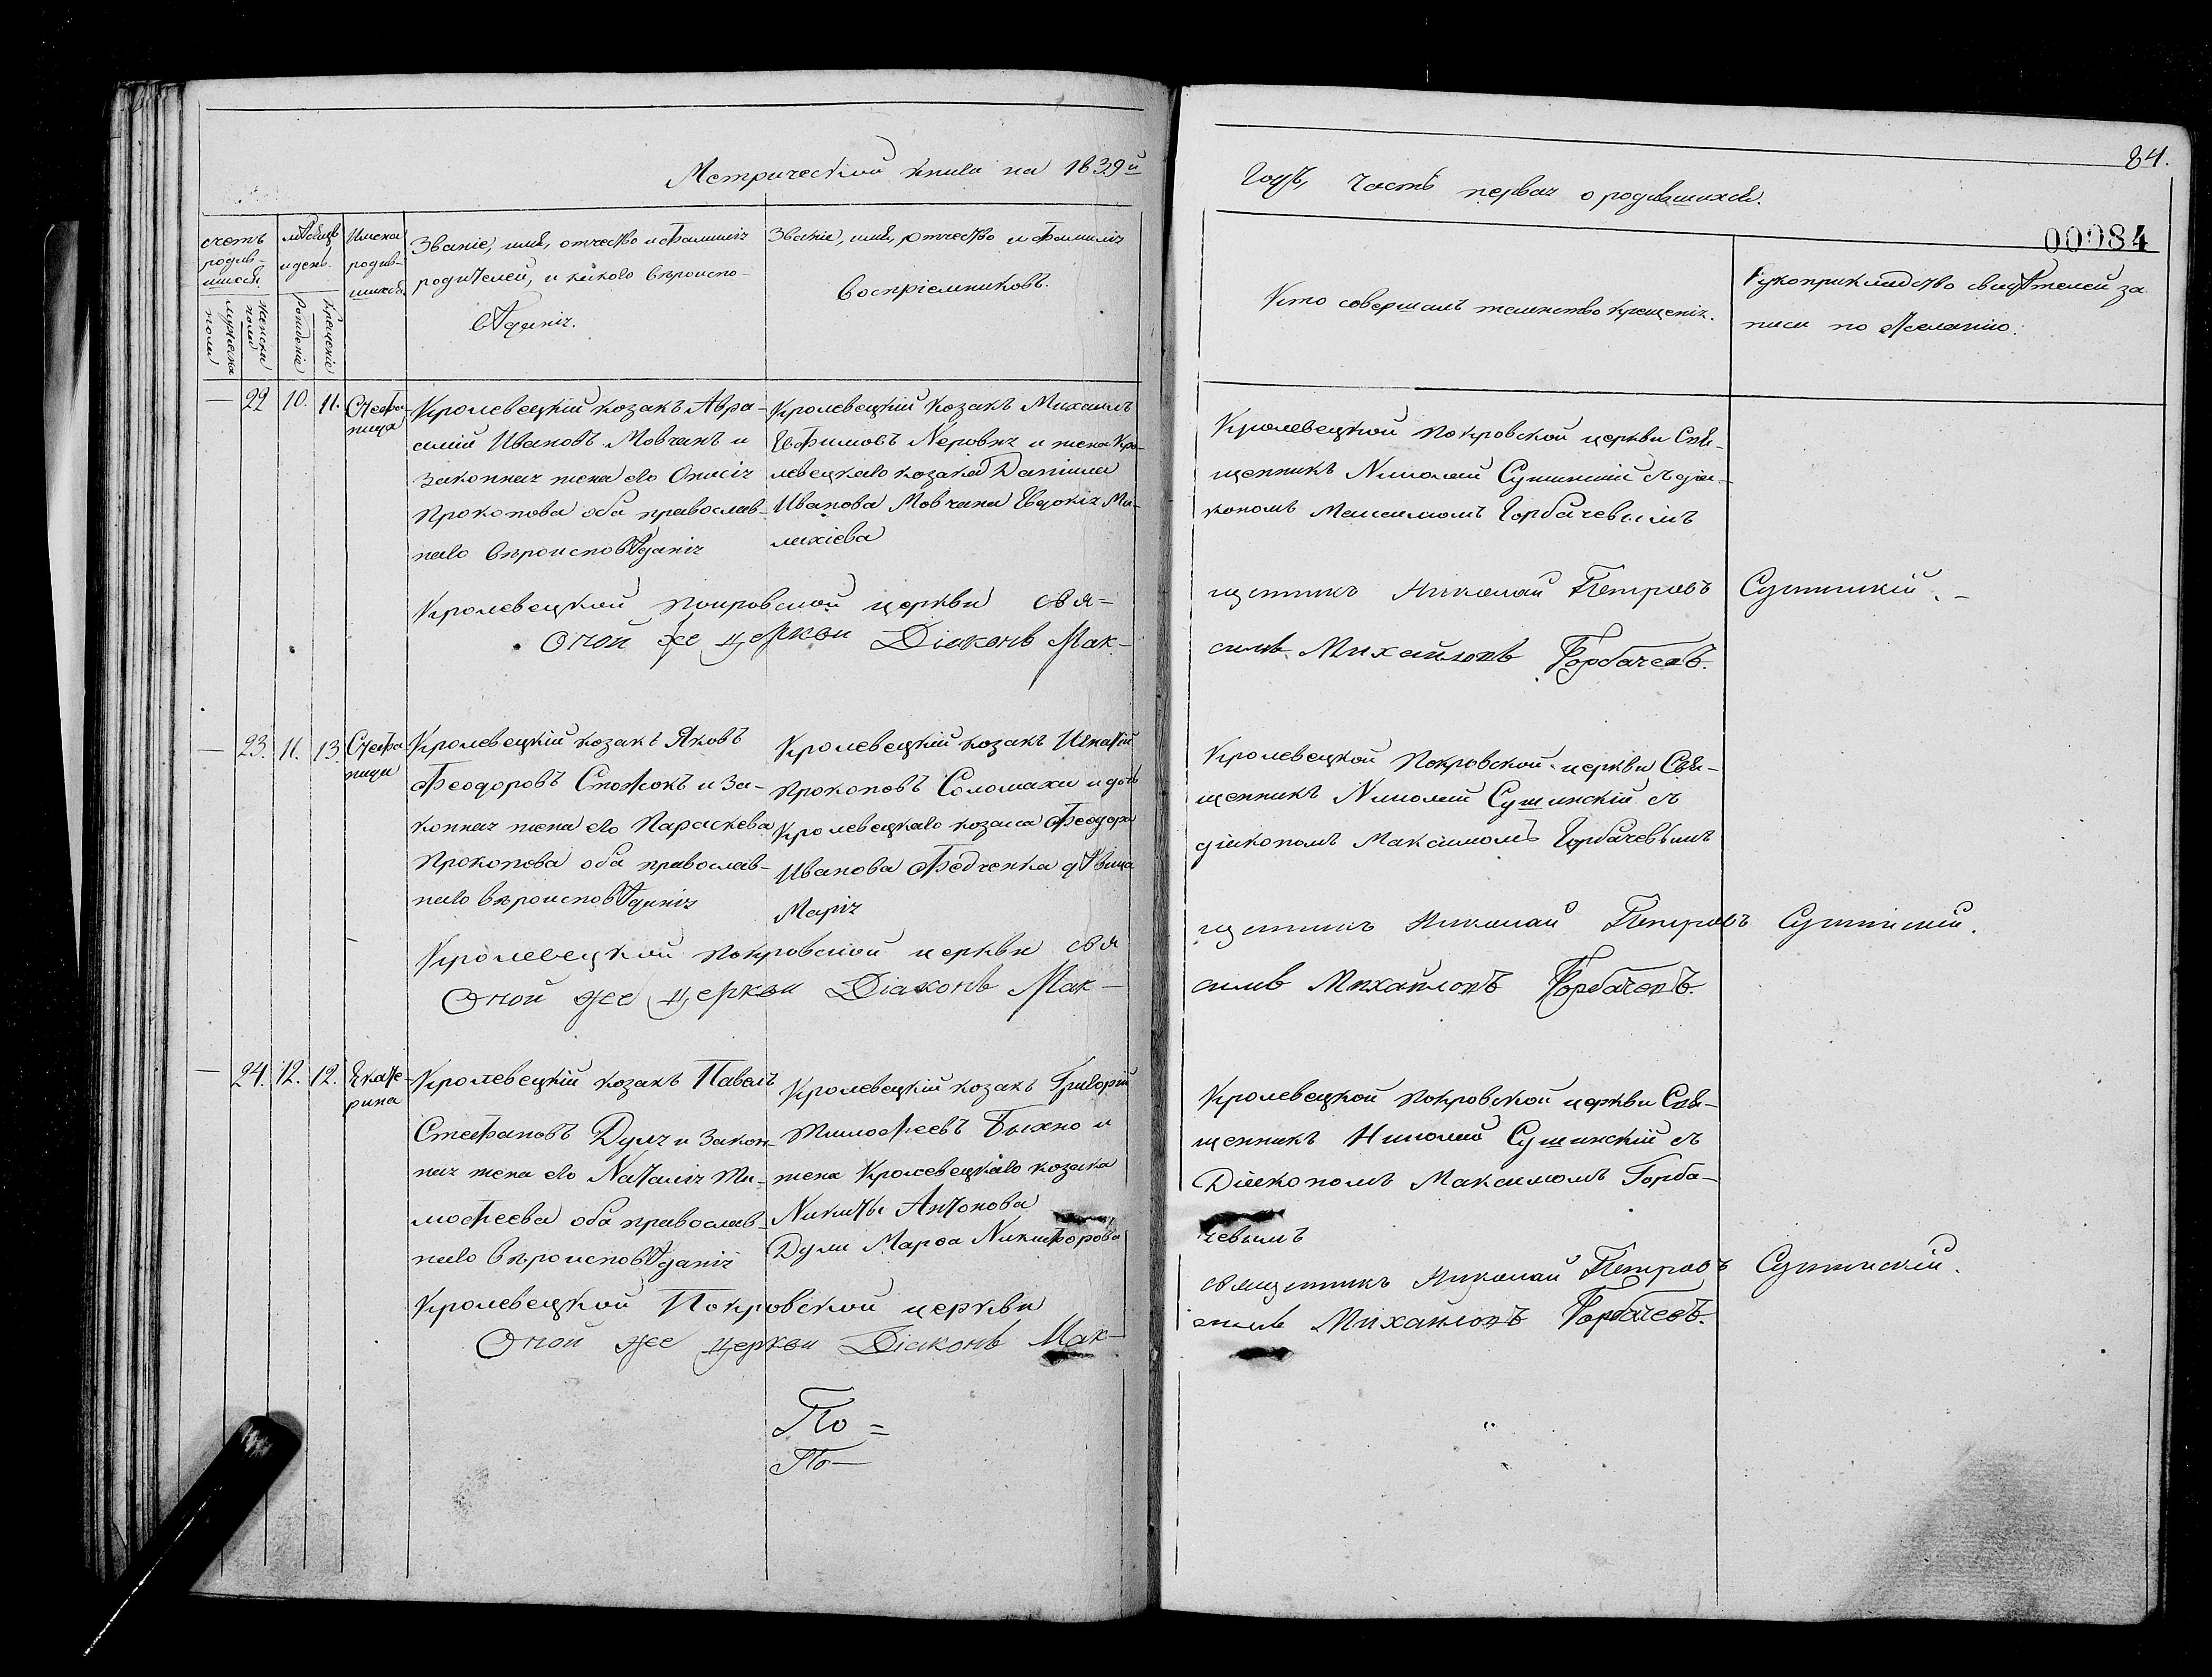 Метрической книги на 1839й
годъ, Часть первая о родившихся.
84.
00084
счетъ родив-
шихся
мужеска
пола
женска
пола
мѣсяцъ
и день.
Рожденіе
Крещеніе
Имена
родив-
шихся
Званіе, имя, отчество и фамилія
родителей, и какого вѣроиспо-
вѣданія.
Званіе, имя, отчество и фамилія
воспріемниковъ.
Кто совершалъ таинство крещенія.
Рукоприкладство свидѣтелей за
писи по желанію.
— 22 10. 11. Стефа-
нида
Кролевецкій козакъ Авра-
амій Ивановъ Мовчанъ и
Законная жена его Онисія
Прокопова оба православ-
наго вѣроисповѣданія
Кролевецкій Козакъ Михаилъ
Евфимовъ и жена Кро-
левецкаго козака Даніила
Иванова Мовчана Евдокія Ма-
лахіева
Кролевецкой Покровской церкви Свя-
щенникъ Николай Сушинскій съ діа-
кономъ Максимомъ Горбачевымъ
Кролевецкой покровской церкви свя=
щенникъ Николай Петровъ Сушинскій. -
Оной же церкви Діаконъ Мак-
симъ Михайловъ Горбачевъ.
— 23. 11. 13. Стефа-
нида
Кролевецкій козакъ Яковъ
Феодоровъ и За-
конная жена его Параскева
Прокопова оба православ-
наго вѣроисповѣданія
Кролевецкій козакъ Игнатій
Прокоповъ Соломаха и дочь
Кролевецкаго козака Феодора
Иванова Федченка дѣвица
Марія
Кролевецкой Покровской церкви Свя-
щенникъ Николай Сушинскій съ
діакономъ Максимомъ Горбачевымъ
Кролевецкой покровской церкви свя
щенникъ Николай Петровъ Сушинскій.
Оной же церкви Діаконъ Мак-
симъ Михайловъ Горбачевъ.
— 24. 12. 12. Екате-
рина
Кролевецкій козакъ Павелъ
Стефановъ Дуля и Закон-
ная жена его Наталія Ти-
мофеева оба православ-
наго вѣроисповѣданія
Кролевецкій козакъ Григорій
Тимофеевъ Быхно и
жена Кролевецкаго козака
Никиты Антонова
Дули Марфа Никифорова
Кролевецкой покровской церкви Свя-
щенникъ Николай Сушинскій съ
Діакономъ Максимомъ Горба-
чевымъ
Кролевецкой Покровской церкви
священникъ Николай Петровъ Сушинскій.
Оной же церкви Діаконъ Мак-
симъ Михайловъ Горбачевъ.
По =
По—